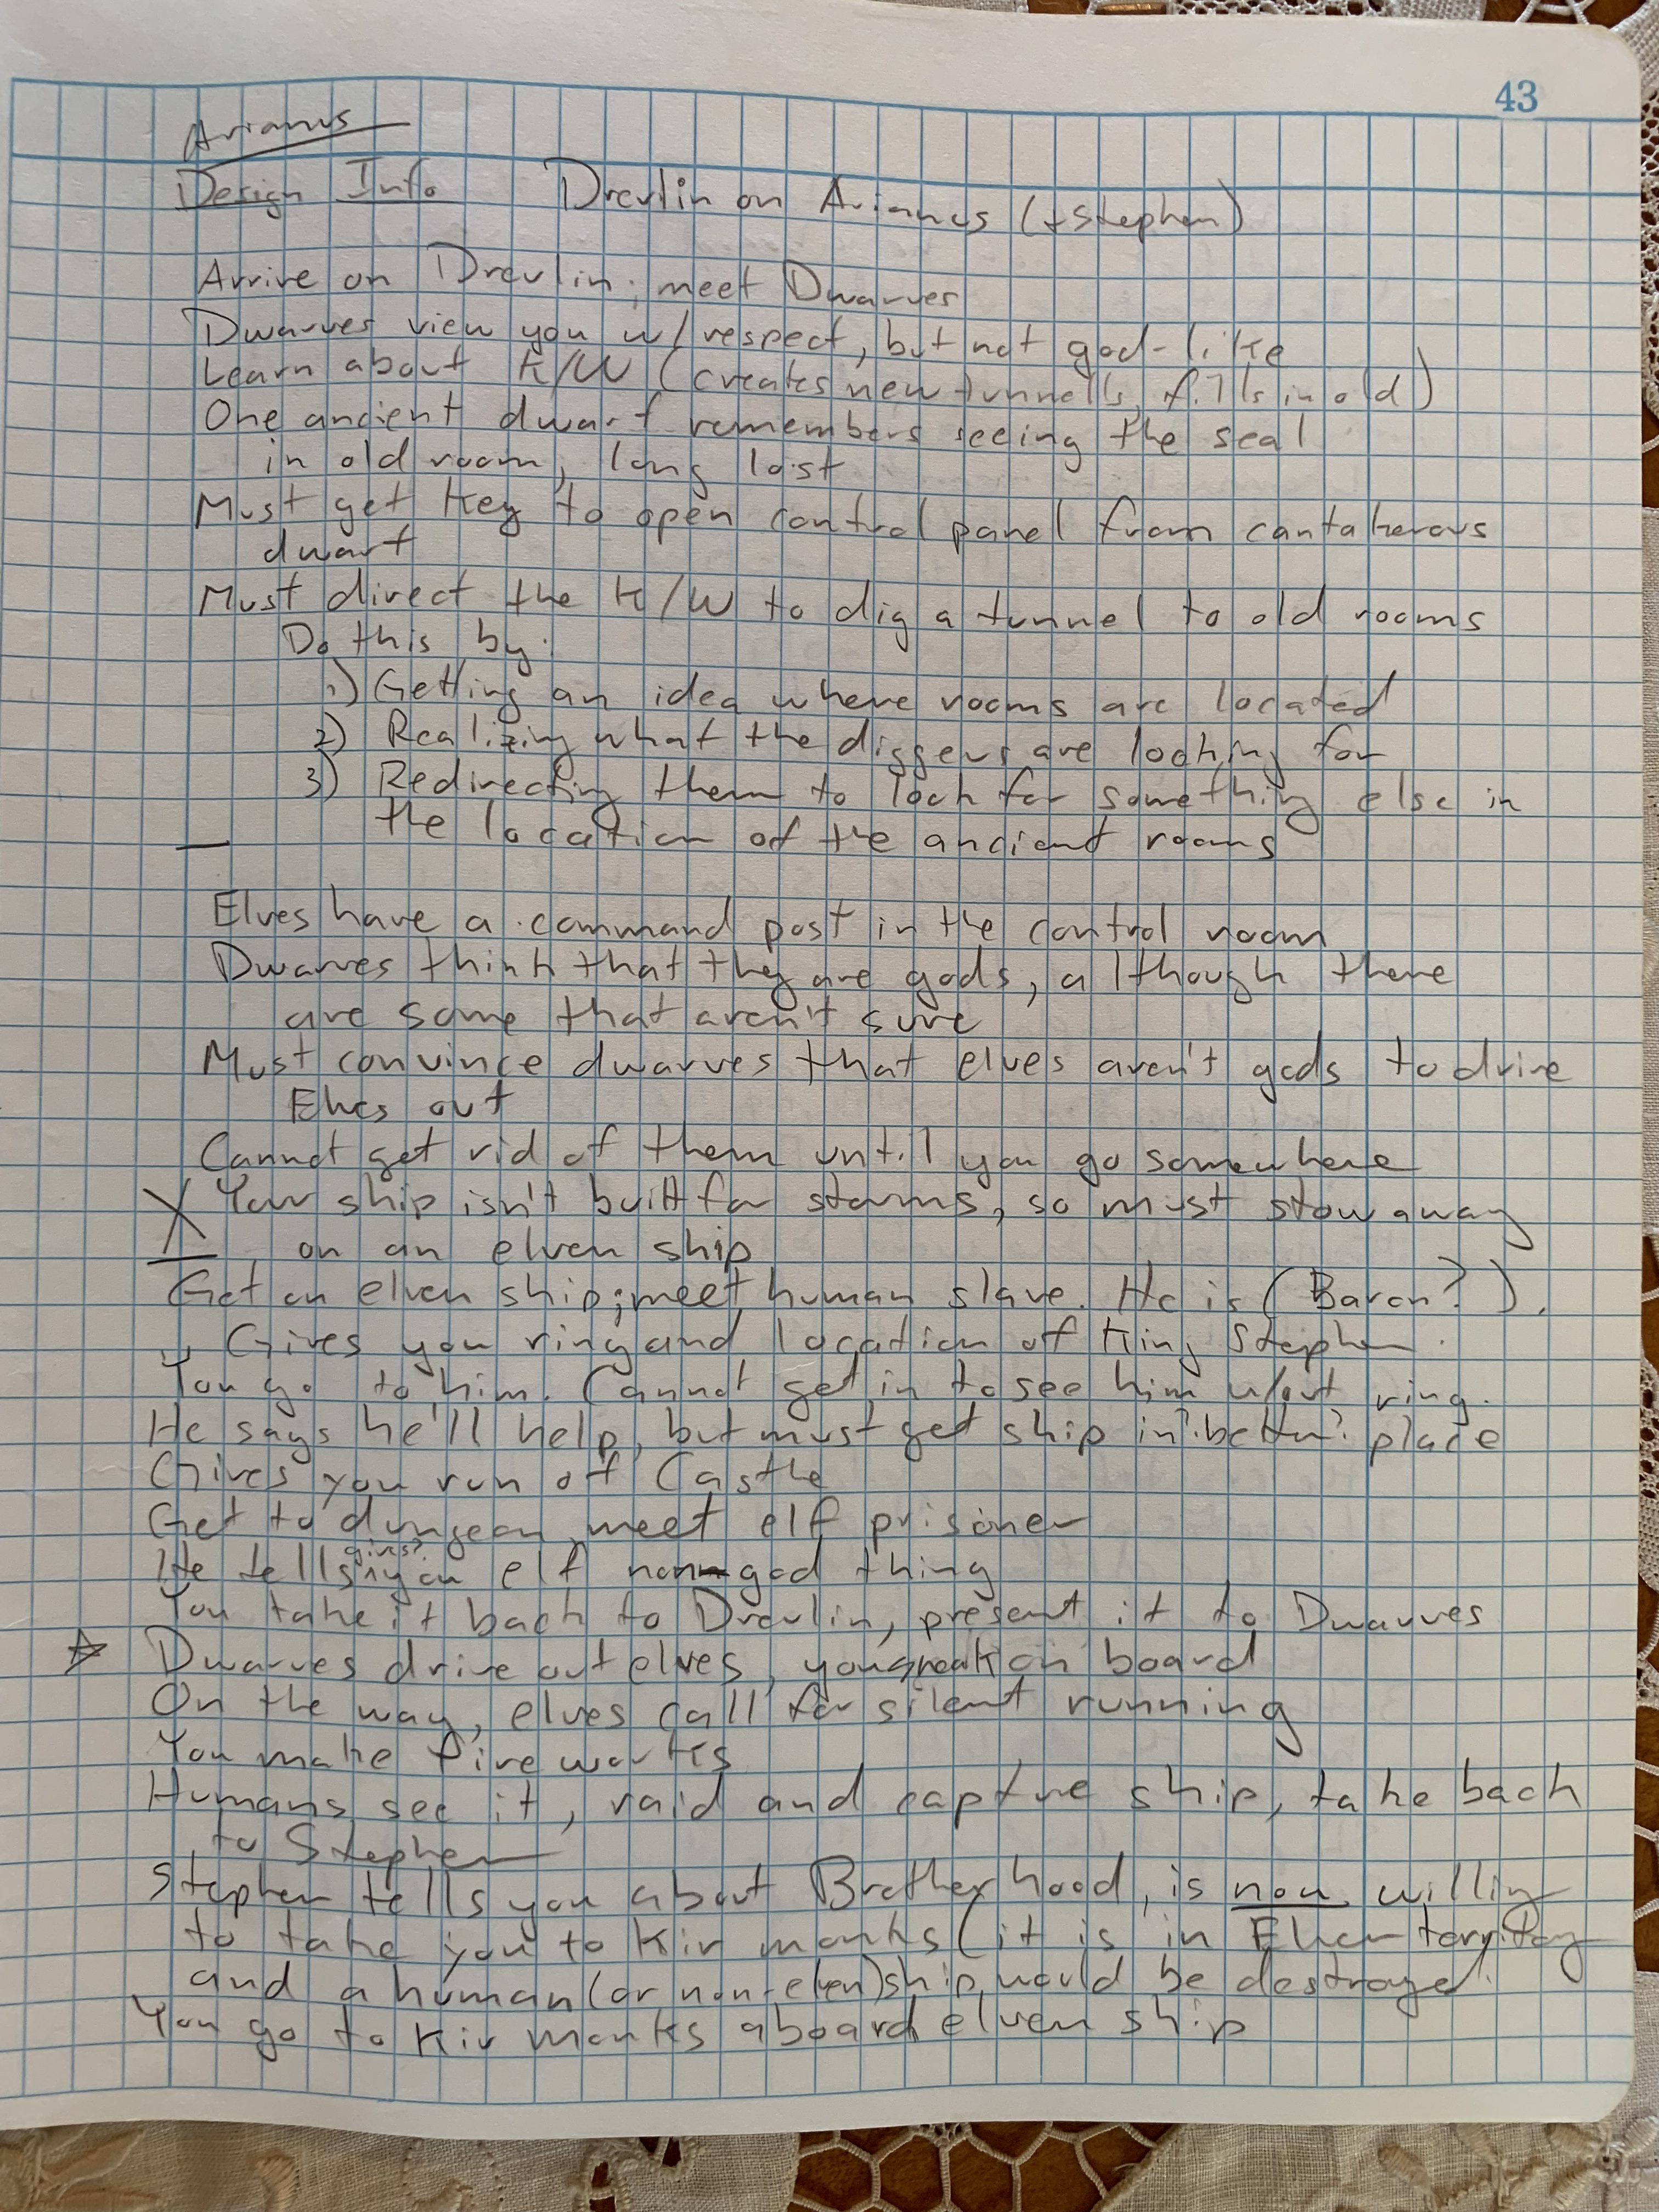 43
Arianus
Design Info Drevlin on Arianus (+Stephen)
Arrive on Drevlin; meet Dwarves
Dwarves view you w/respect, but not god-like
Learn about K/W (creates new tunnells, fills in old)
One ancient dwarf remembers seeing the seal
in old room, long lost
Must get key to open control panel from cantakerous
dwarf
Must direct the K/W to dig a tunnel to old rooms
Do this by:
1) Getting an idea where rooms are located
2) Realizing what the diggers are looking for
3) Redirecting them to look for something else in
the location of the ancient rooms
Elves have a command post in the control room
Dwarves think that they are gods, although there
are some that aren't sure
Must convince dwarves that elves aren't gods to drive
Elves out
Cannot get rid of them until you go somewhere
X Your ship isn't built for storms, so must stow away
on an elven ship
Get on elven ship; meet human slave. He is (Baron?).
Gives you ring and location of King Stephen.
You go to him. Cannot get in to see him w/out ring.
He says he'll help, but must get ship in "better" place
Gives you run of Castle
Get to dungeon, meet elf prisoner
gives?
He tells you elf non-god thing
You take it back to Drevlin, present it to Dwarves
☆ Dwarves drive out elves, you sneak on board
On the way, elves call for silent running
You make fireworks
Humans see it, raid and capture ship, take back
to Stephen
Stephen tells you about Brotherhood, is now willing
to take you to Kir monks (it is in Elven territory
and a human (or non-elven) ship would be destroyed.
You go to Kir monks aboard elven ship